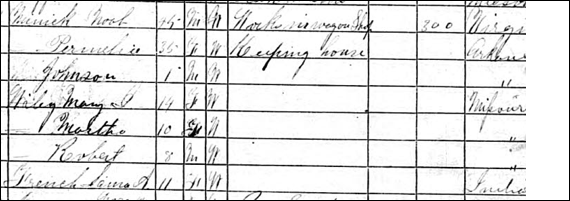 Minick Noah 45 M W Works in wagon Shop 300 Virgi
— Permelia 35 F W Keeping house Arkan
— Johnson 1 M W "
Wiley Mary 14 F W Missour
— Martha 10 F W "
— Robert 8 M W "
French A 11 F W India